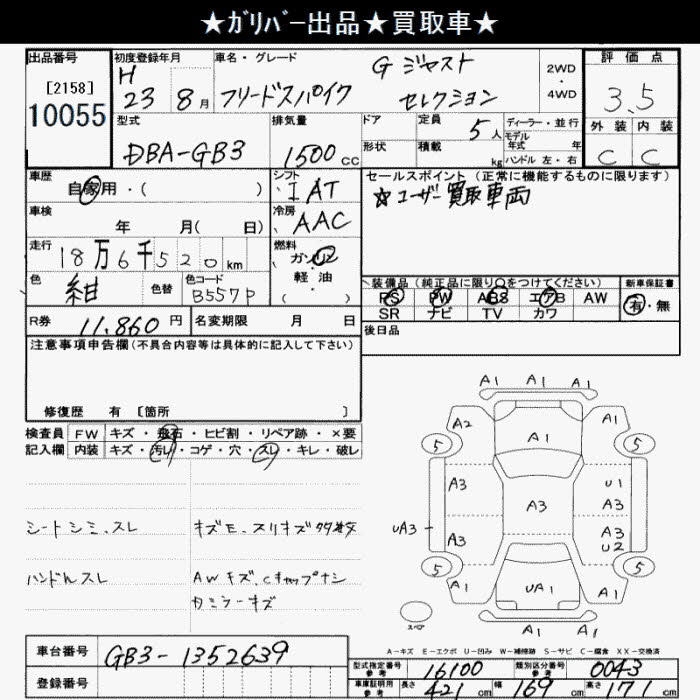 ★ガリバー出品★買取車★
出品番号 初度登録年月 車名・グレード 評価点
[2158] H 23 8月 フリードスパイク G ジャスト セレクション 2WD・4WD 3.5
10055
型式 排気量 ドア 定員 ディーラー・並行 外装 内装
DBA-GB3 1500cc 5人 モデル年式 年 C C
形状 積載 kg ハンドル 左・右
車歴 自家用・( ) シフト IAT セールスポイント (正常に機能するものに限ります)
☆ユーザー買取車両
車検 年 月( 日) 冷房 AAC
走行 18万6千520km 燃料 ガソリン 軽油 ( )
色 紺 色替 色コード B557P
装備品(純正品に限り○をつけてください) 新車保証書
PS PW ABS エアB AW 有・無
SR ナビ TV カワ
R券 11,860円 名変期限 月 日 後日品
注意事項申告欄(不具合内容等は具体的に記入して下さい)
修復歴 有 [箇所 ]
検査員 FW キズ・飛石・ヒビ割・リペア跡・×要
記入欄 内装 キズ・汚レ・コゲ・穴・スレ・キレ・破レ
シートシミ、スレ
ハンドルスレ
キズE、スリキズ多数
AWキズ、Cキャップナシ
カミラーキズ
A1 A1 A1
A2 A1 A1
5 5
A3 U1
A3 A3
UA3 A3 A3
U2
5 5
A1 UA1 A1
A1 A1 A1
スペア
A-キズ E-エクボ U-凹み W-補修跡 S-サビ C-腐食 XX-交換済
車台番号 GB3-1352639
登録番号
型式指定番号 参考 16100 類別区分番号 参考 0043
車庫証明用 参考 長さ 421cm 幅 169cm 高さ 171cm